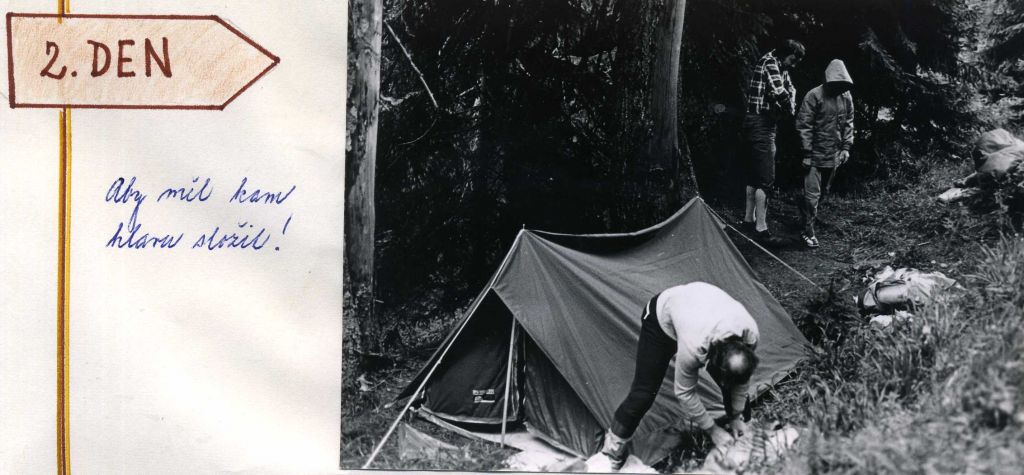 2. DEN
Aby měl kam
hlavu složit!